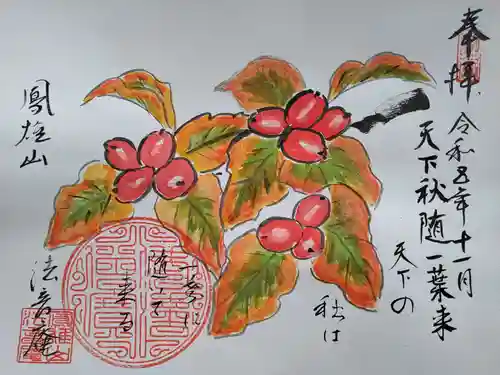 奉拝
令和5年十一月
天下秋随一葉来
天下の
秋は
一葉に
随いて
来る
鳳雄山
法音庵